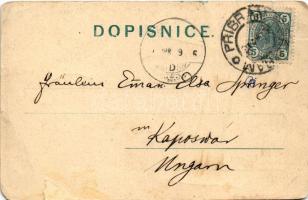 DOPISNICE.
5 5
PRIBRAM
Fräulein Elsa Springer
in
Kaposvár
Ungarn